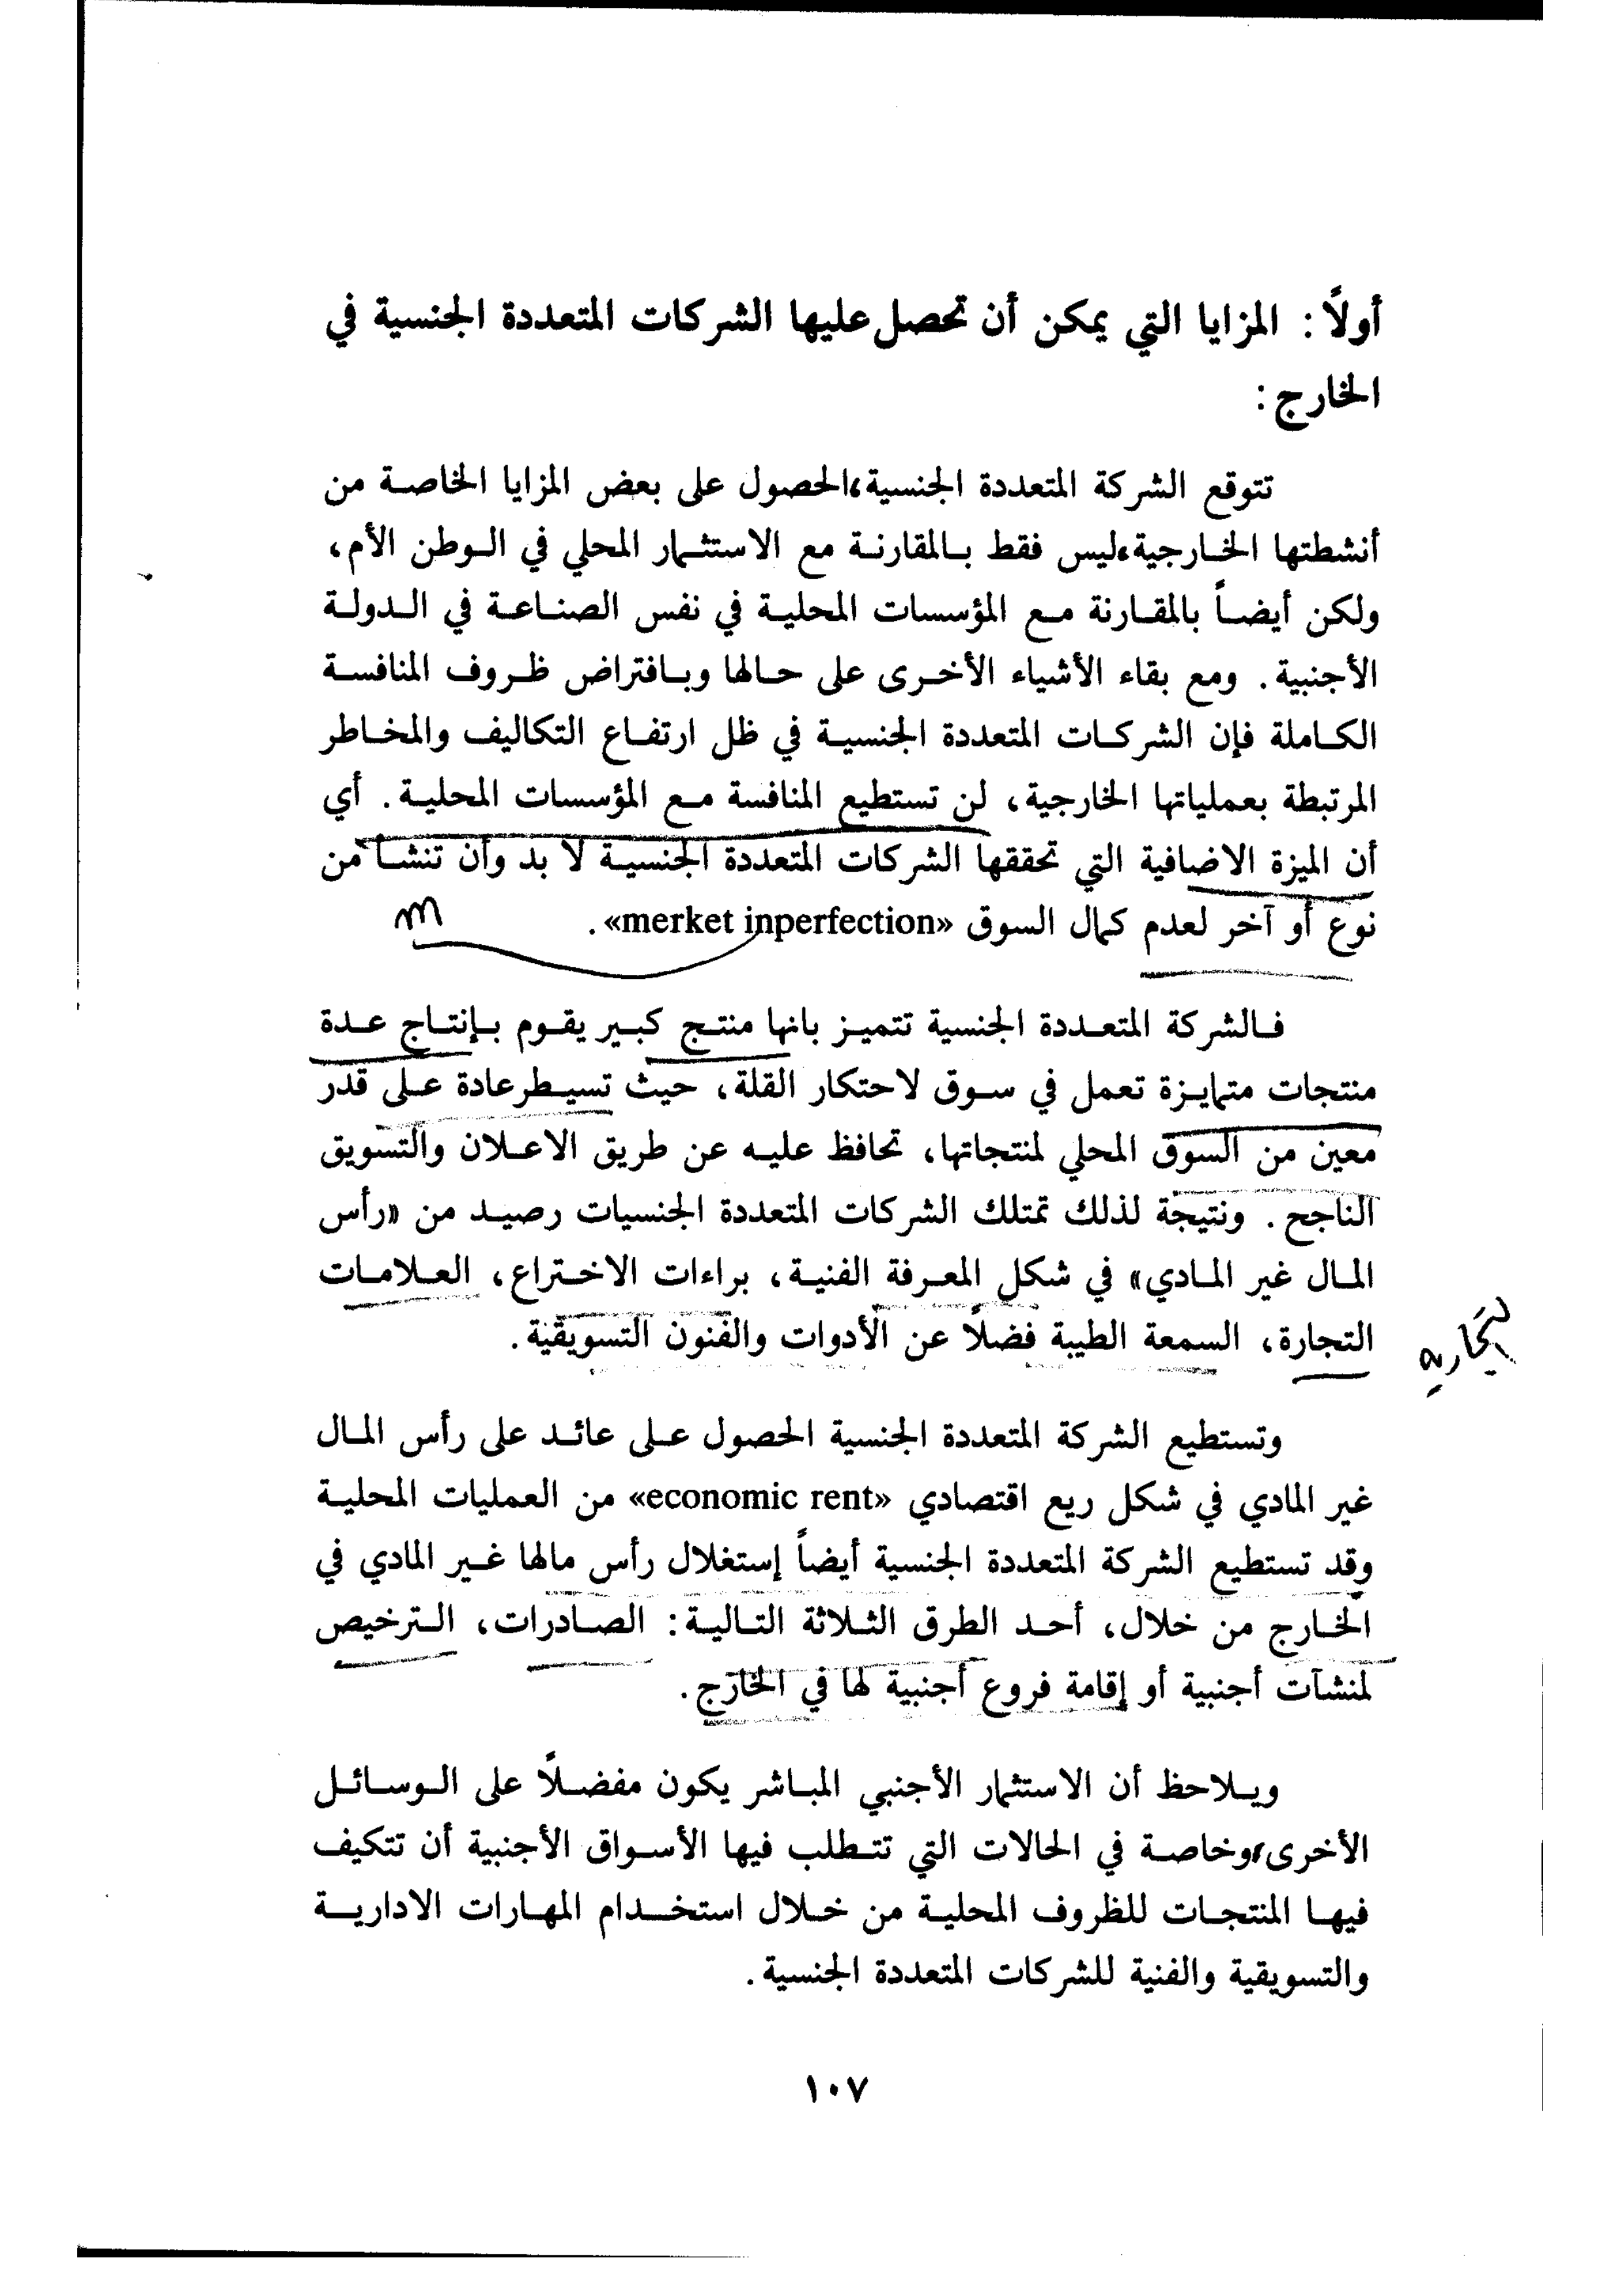 أولاً : المزايا التي يمكن أن تحصل عليها الشركات المتعددة الجنسية في
الخارج :
تتوقع الشركة المتعددة الجنسية، الحصول على بعض المزايا الخاصة من
أنشطتها الخارجية، ليس فقط بالمقارنة مع الاستثمار المحلي في الوطن الأم،
ولكن أيضاً بالمقارنة مع المؤسسات المحلية في نفس الصناعة في الدولة
الأجنبية. ومع بقاء الأشياء الأخرى على حالها وبافتراض ظروف المنافسة
الكاملة فإن الشركات المتعددة الجنسية في ظل ارتفاع التكاليف والمخاطر
المرتبطة بعملياتها الخارجية، لن تستطيع المنافسة مع المؤسسات المحلية. أي
أن الميزة الاضافية التي تحققها الشركات المتعددة الجنسية لا بد وأن تنشأ من
نوع أو آخر لعدم كمال السوق «merket inperfection».
m
فالشركة المتعددة الجنسية تتميز بانها منتج كبير يقوم بإنتاج عدة
منتجات متمايزة تعمل في سوق لاحتكار القلة، حيث تسيطر عادة على قدر
معين من السوق المحلي لمنتجاتها، تحافظ عليه عن طريق الاعلان والتسويق
الناجح. ونتيجة لذلك تمتلك الشركات المتعددة الجنسيات رصيد من «رأس
المال غير المادي» في شكل المعرفة الفنية، براءات الاختراع، العلامات
التجارة، السمعة الطيبة فضلاً عن الأدوات والفنون التسويقية.
تجاريه
وتستطيع الشركة المتعددة الجنسية الحصول على عائد على رأس المال
غير المادي في شكل ريع اقتصادي «economic rent» من العمليات المحلية
وقد تستطيع الشركة المتعددة الجنسية أيضاً إستغلال رأس مالها غير المادي في
الخارج من خلال، أحد الطرق الثلاثة التالية: الصادرات، الترخيص
لمنشآت أجنبية أو إقامة فروع أجنبية لها في الخارج.
ويلاحظ أن الاستثمار الأجنبي المباشر يكون مفضلاً على الوسائل
الأخرى، وخاصة في الحالات التي تتطلب فيها الأسواق الأجنبية أن تتكيف
فيها المنتجات للظروف المحلية من خلال استخدام المهارات الادارية
والتسويقية والفنية للشركات المتعددة الجنسية.
١٠٧